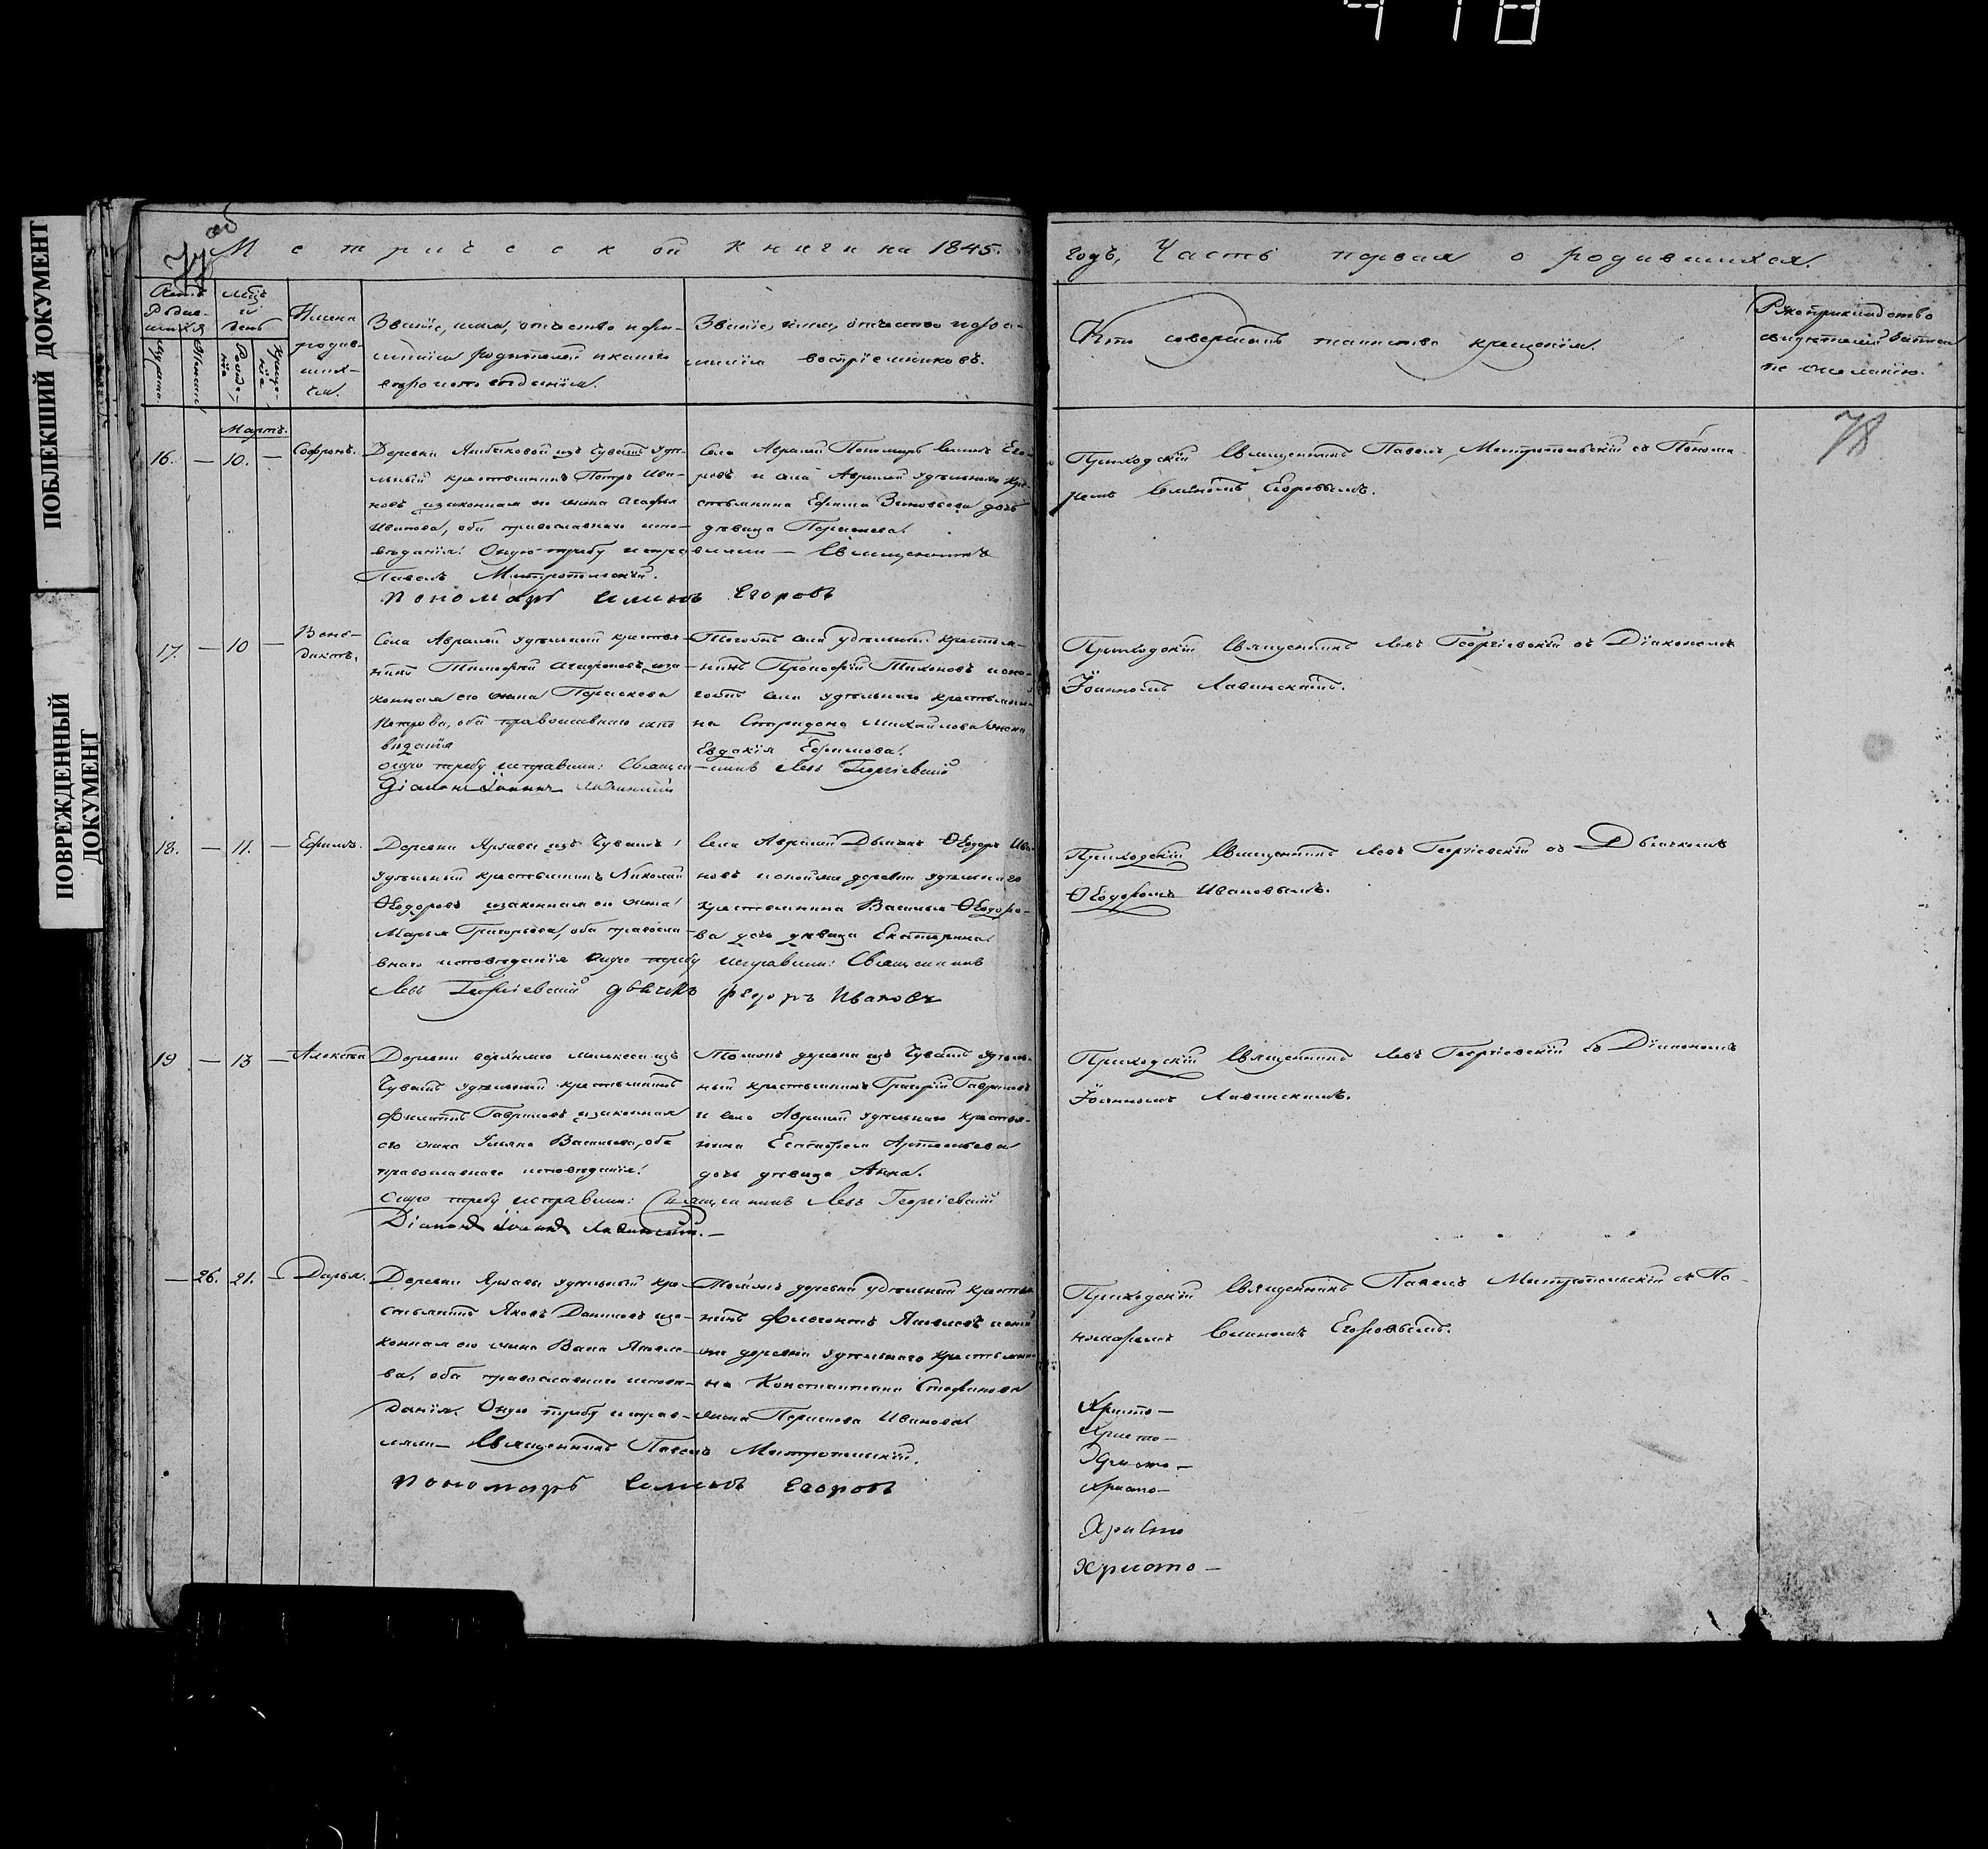 418
ПОБЛЕКШИЙ ДОКУМЕНТ
ПОВРЕЖДЕННЫЙ
ДОКУМЕНТ
77 об
Метрической книги на 1845.
годъ, Часть первая о родившихся.
78
Имена
родив-
ших-
ся.
Званіе, имя, отчество и фа-
милія родителей и какого
вѣроисповѣданія.
Званіе, имя, отчество и фа-
милія воспріемниковъ.
Кто совершалъ таинство крещенія.
Рукоприкладство
свидѣтелей записи
по желанію.
Мартъ.
16. — 10. — Софронъ.
Деревни изъ Чувашъ удѣ-
льный крестьянинъ Петръ Ива-
новъ и законная его жена Агафья
Иванова, оба православнаго испо-
вѣданія. Оную требу исправляли — Священникъ
Павелъ Митропольскій.
Пономарь Симонъ Егоровъ
Села Авралей Пономарь Симонъ Его-
ровъ и села Авралей удѣльнаго кре-
стьянина Ефима Зиновьева дочь
дѣвица
Приходскій Священникъ Павелъ Митропольскій съ Понома-
ремъ Симономъ Егоровымъ.
17. — 10 — Вене-
диктъ.
Села Авралей удѣльный крестья-
нинъ Тимофей Агафоновъ и за-
конная его жена Параскева
Петрова, оба православнаго испо
вѣданія
оную требу исправляли: Священ-никъ Левъ Георгіевскій
Діаконъ Іоаннъ Лавинскій
Тогожъ села удѣльный крестья-
нинъ Прокофій Тихоновъ и оно-
гожъ села удѣльнаго крестьяни-
на Спиридона Михайлова жена
Евдокія Ефимова.
Приходскій Священникъ Левъ Георгіевскій съ Діакономъ
Іоанномъ Лавинскимъ.
18. — 11. — Ефимъ.
Деревни изъ Чувашъ
удѣльный крестьянинъ Николай
Ѳеодоровъ и законная его жена
Марья Григорьева, оба правосла-
внаго исповѣданія оную требу исправляли: Священникъ
Левъ Георгіевскій дьячекъ Федоръ Ивановъ
Села Авралей Дьячекъ Ѳеодоръ Ива-
новъ и оной же деревни удѣльнаго
крестьянина Василья Ѳеодоро-
ва дочь дѣвица Екатерина
Приходскій Священникъ Левъ Георгіевскій съ Дьячкомъ
Ѳеодоромъ Ивановымъ.
19 — 13 — Алексѣй
Деревни изъ
Чувашъ удѣльный крестьянинъ
Филиппъ Гавриловъ и законная
его жена Ульяна Васильева, оба
православнаго исповѣданія.
Оную требу исправляли: Священникъ Левъ Георгіевскій
Діаконъ Іоаннъ Лавинскій.—
Тойжъ деревни изъ Чувашъ удѣль-
ный крестьянинъ Григорій Гавриловъ
и села Авралей удѣльнаго крестья-
нина Артемьева
дочь дѣвица Анна.
Приходскій Священникъ Левъ Георгіевскій съ Діакономъ
Іоанномъ Лавинскимъ.
— 26. 21. — Дарья.
Деревни удѣльный кре-
стьянинъ Яковъ Даниловъ и за-
конная его жена
оба православнаго исповѣ-
данія. Оную требу исправ-
ляли — Священникъ Павелъ Митропольскій.
Пономарь Симонъ Егоровъ
Тойжъ деревни удѣльный крестья-
нинъ
деревни удѣльнаго крестьяни-
на Константина Стефанова
жена Параскева Иванова
Приходскій Священникъ Павелъ Митропольскій съ По-
номаремъ Симономъ Егоровымъ.
Христо—
Христо—
Христо—
Христо—
Христо
Христо—